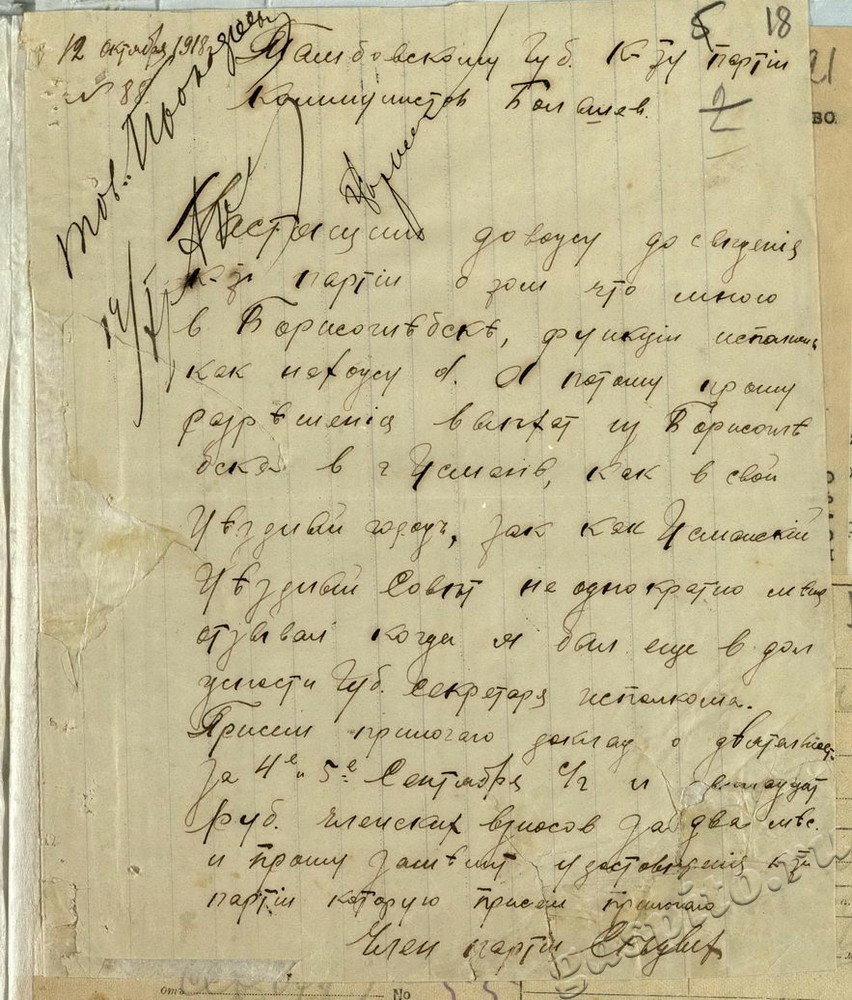 5 18
12 октября 1918
№ 88
Тамбовскому Губ. К-ту партіи
2
Коммунистов Большев.
тов. Проко
Настоящим довожу до сведенія
К-та партіи о том что мною
в Борисоглѣбскѣ, функціи исполнил
как нахожу я. А потому прошу
разрѣшенія выехат из Борисоглѣ
бска в г Усмань, как в свой
Уѣздный город, так как Усманскій
Уѣздный Совѣт не однократно меня
отзывал когда я был еще в дол
жности Губ. Секретаря исполкома.
Присем прилагаю доклад о дѣятельност
за 4е и 5е Сентября с/г и
руб. членских взносов за два мѣс.
и прошу заменит удостовѣренія к-та
партіи которую присем прилагаю
Член партіи
отъ
No